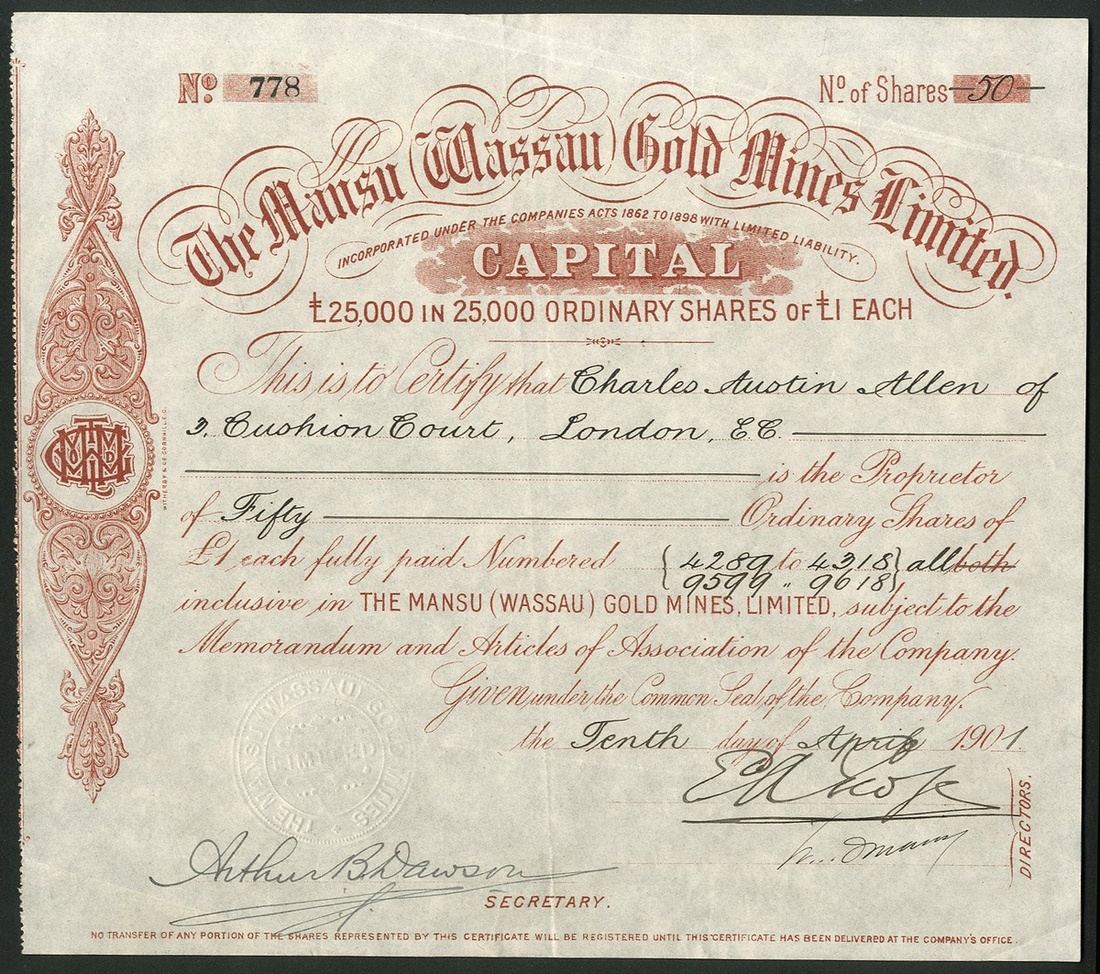 Nº. 778
Nº of Shares 50
The Mansu (Wassau) Gold Mines Limited.
INCORPORATED UNDER THE COMPANIES ACTS 1862 TO 1898 WITH LIMITED LIABILITY.
CAPITAL
£25,000 IN 25,000 ORDINARY SHARES OF £1 EACH
This is to Certify that Charles Austin Allen of
3, Cushion Court, London, EC.
is the Proprietor
of Fifty Ordinary Shares of
£1 each fully paid Numbered {4289 to 4318} all both
9599 " 9618
inclusive in THE MANSU (WASSAU) GOLD MINES, LIMITED, subject to the
Memorandum and Articles of Association of the Company.
Given under the Common Seal of the Company,
the Tenth day of April 1901.
THE MANSU (WASSAU) GOLD MINES
LIMITED
DIRECTORS.
Arthur B Dawson
SECRETARY.
NO TRANSFER OF ANY PORTION OF THE SHARES REPRESENTED BY THIS CERTIFICATE WILL BE REGISTERED UNTIL THIS CERTIFICATE HAS BEEN DELIVERED AT THE COMPANY'S OFFICE.
WITHERBY & CO CORNHILL, E.C.